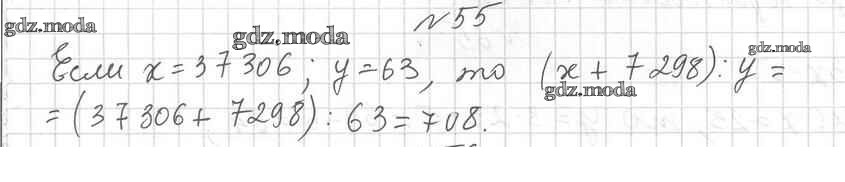 № 55
gdz.moda
gdz.moda
gdz.moda
Если x = 37 306; y = 63, то (x + 7 298) : y =
gdz.moda
= (37 306 + 7298) : 63 = 708.